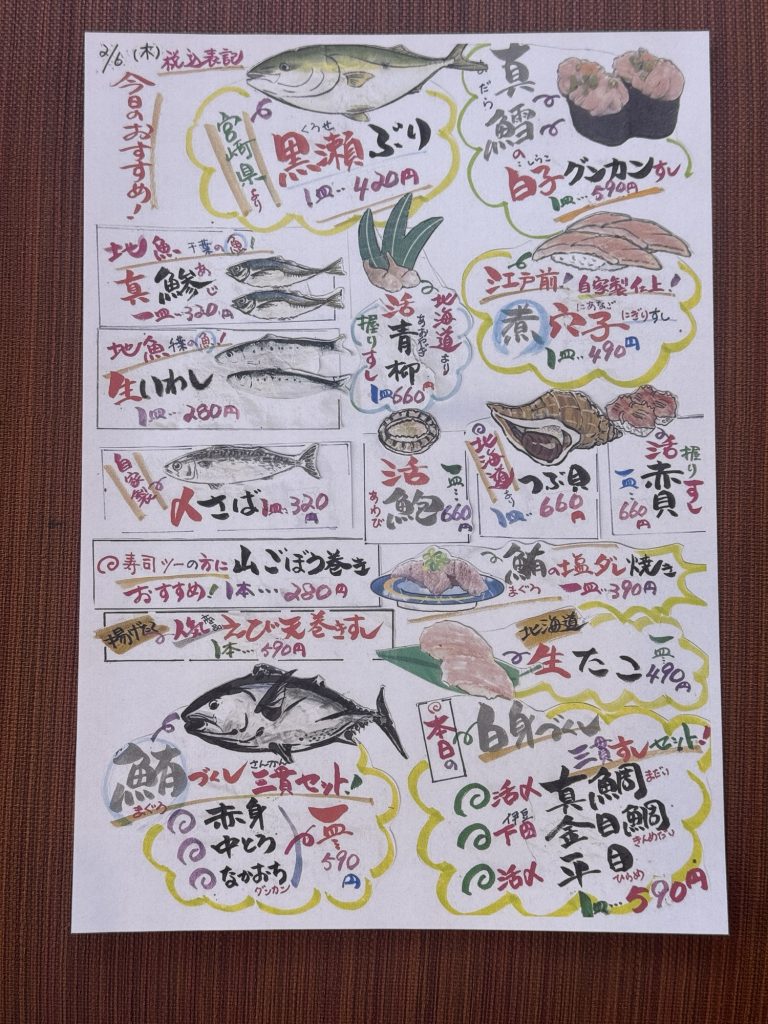 2/6 (木) 税込表記
今日のおすすめ!
宮崎県より
くろせ
黒瀬ぶり
1皿‥420円
真鱈の
だら
しらこ
白子グンカンすし
1皿‥590円
地魚 千葉の魚!
真鯵
あじ
一皿‥320円
地魚 千葉の魚!
生いわし
1皿‥280円
北海道より
活青柳
あおやぎ
握りすし
1皿660円
江戸前! 自家製仕上!
にあなご
煮穴子にぎりすし
1皿‥490円
自家製
〆さば1皿‥320円
活鮑
あわび
一皿‥660円
北海道より
つぶ貝
1皿‥660円
活赤貝
握りすし
一皿‥660円
寿司ツーの方に
おすすめ!
山ごぼう巻き
1本‥‥280円
鮪の塩ダレ焼き
まぐろ
一皿‥390円
揚げたて
人気商品
えび天巻きすし
1本‥‥590円
北海道
生たこ
一皿‥490円
鮪づくし三貫セット!
まぐろ
さんかん
赤身
中とろ
なかおち
グンカン
一皿‥590円
本日の
白身づくし
三貫すしセット!
活〆 真鯛 まだい
伊豆下田 金目鯛 きんめだい
活〆 平目 ひらめ
1皿‥590円